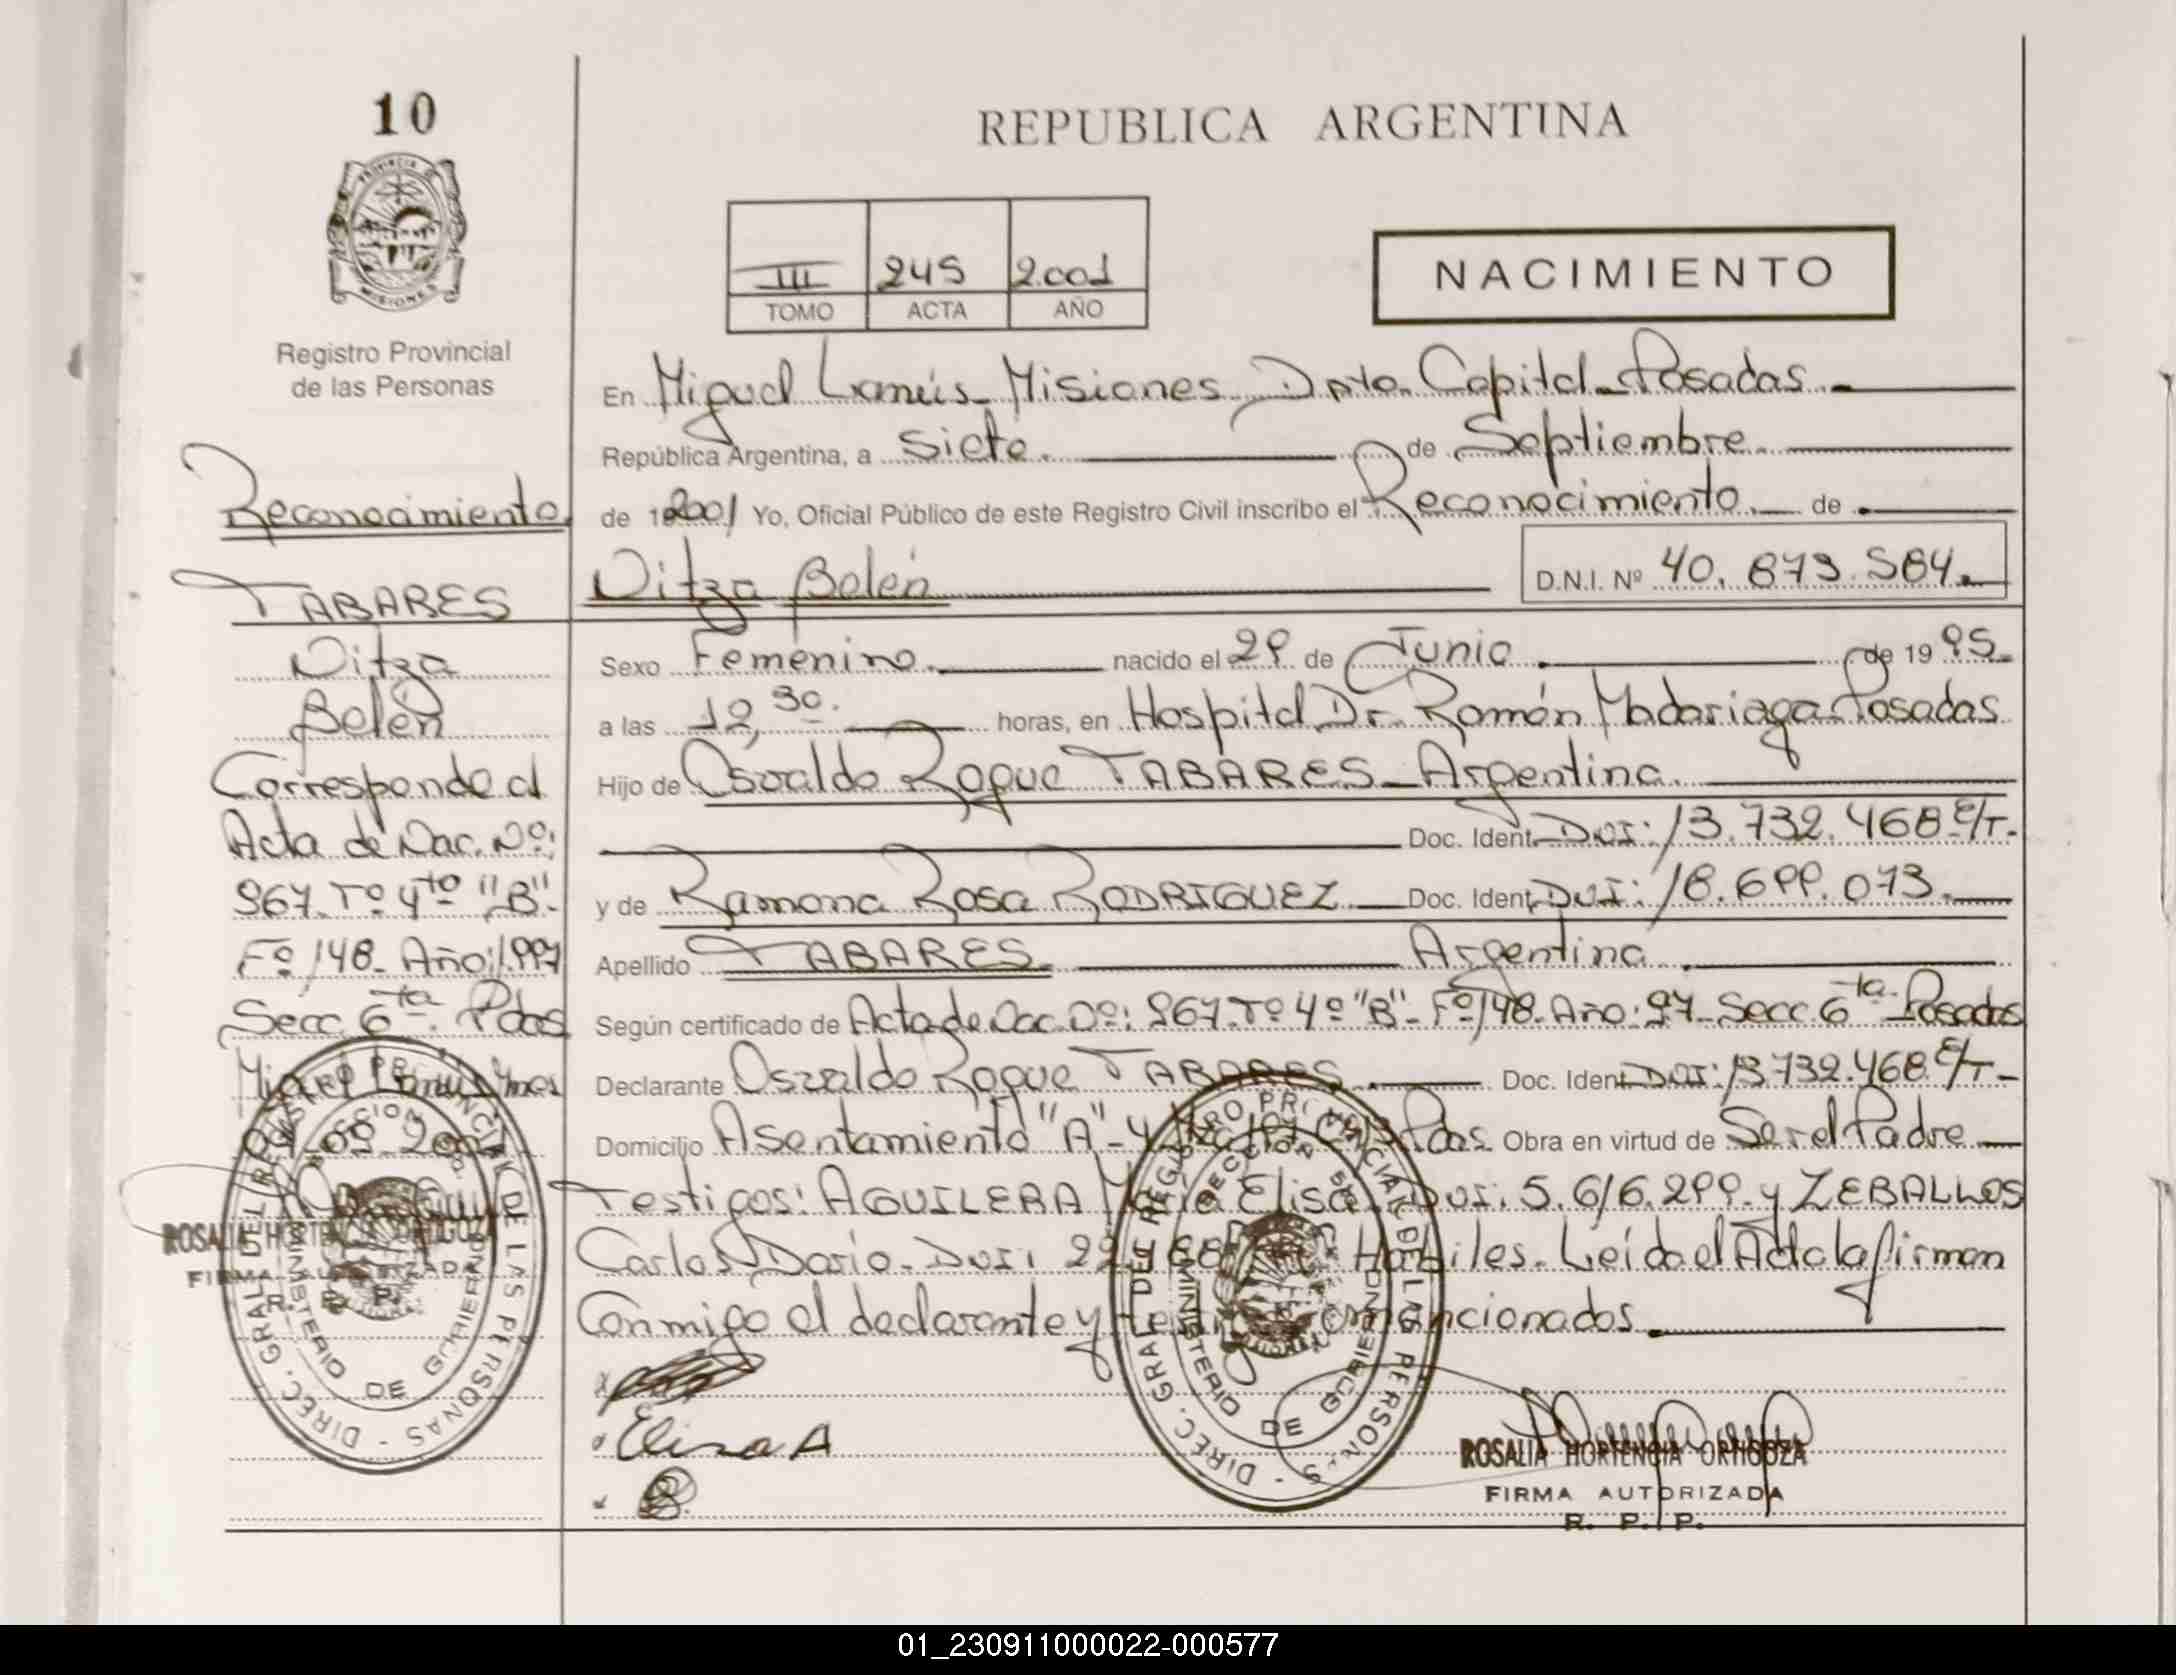 10
REPUBLICA ARGENTINA
PROVINCIA DE MISIONES
III 245 2.001
TOMO ACTA AÑO
NACIMIENTO
Registro Provincial
de las Personas
En Miguel Lanús - Misiones, Dpto. Capital - Posadas.
República Argentina, a Siete. de Septiembre.
Reconocimiento
de 2001 Yo, Oficial Público de este Registro Civil inscribo el Reconocimiento. de
Nitza Belén D.N.I. Nº 40.873.584.
TABARES
Nitza
Belén
Corresponde al
Acta de Nac. Nº:
967. Tº 4to "B".
Fº 148. Año: 1.997
Secc. 6ta. Pdas
Miguel Lanús Mnes
07-09-2001
Sexo Femenino. nacido el 29 de Junio. de 1995.
a las 12,30. horas, en Hospital Dr. Ramón Madariaga - Posadas
Hijo de Osvaldo Roque TABARES - Argentina.
Doc. Ident. DNI: 13.732.468 - E/T-
y de Ramona Rosa RODRIGUEZ Doc. Ident. DNI: 18.699.073.
Apellido TABARES. Argentina.
Según certificado de Acta de Nac. Nº: 967. Tº 4º "B" - Fº 148 - Año: 97 - Secc. 6ta. Posadas
Declarante Osvaldo Roque TABARES. Doc. Ident. DNI: 13.732.468 E/T-
Domicilio Asentamiento "A" - y Pdas. Obra en virtud de Ser el Padre
Testigos: AGUILERA María Elisa. DNI: 5.616.299. y ZEBALLOS
Carlos Dario - DNI: Habiles. Leída el Acta la firman
Conmigo el declarante y testigos mencionados.
Elisa A
ROSALIA HORTENCIA ORTIGOZA
FIRMA AUTORIZADA
R. P. P.
ROSALIA HORTENCIA ORTIGOZA
FIRMA AUTORIZADA
R. P. P.
DIREC. GRAL DEL REGISTRO PROVINCIAL DE LAS PERSONAS
MINISTERIO DE GOBIERNO
DIREC. GRAL DEL REGISTRO PROVINCIAL DE LAS PERSONAS
MINISTERIO DE GOBIERNO
01_230911000022-000577